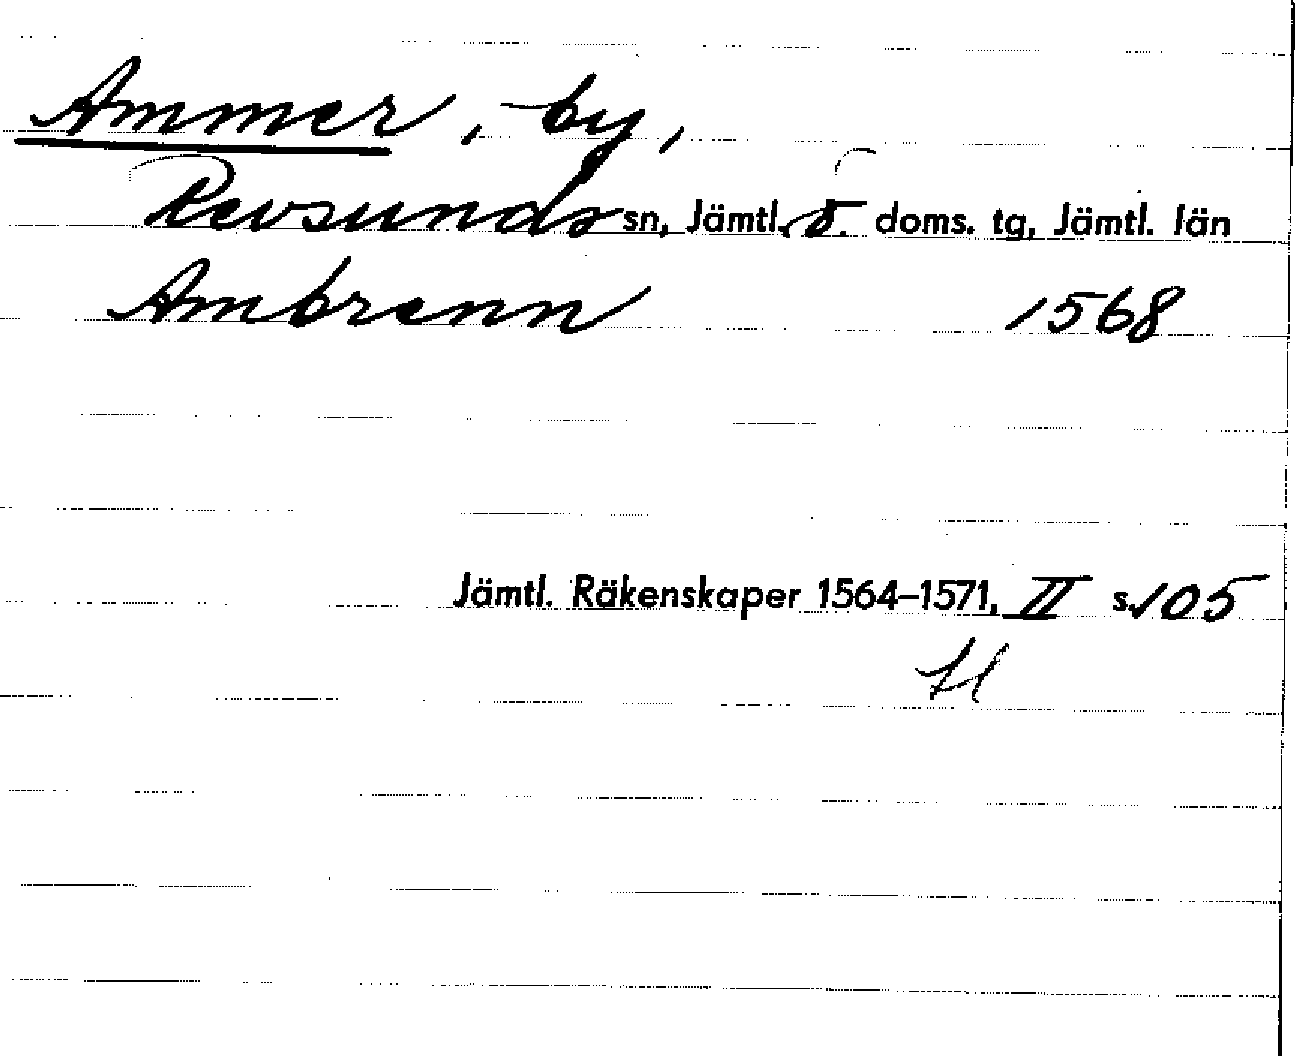 Ammer, by,
Revsunds sn, Jämtl. ö. doms. tg, Jämtl. län
Ambrenn 1568
Jämtl. Räkenskaper 1564–1571, II s. 105